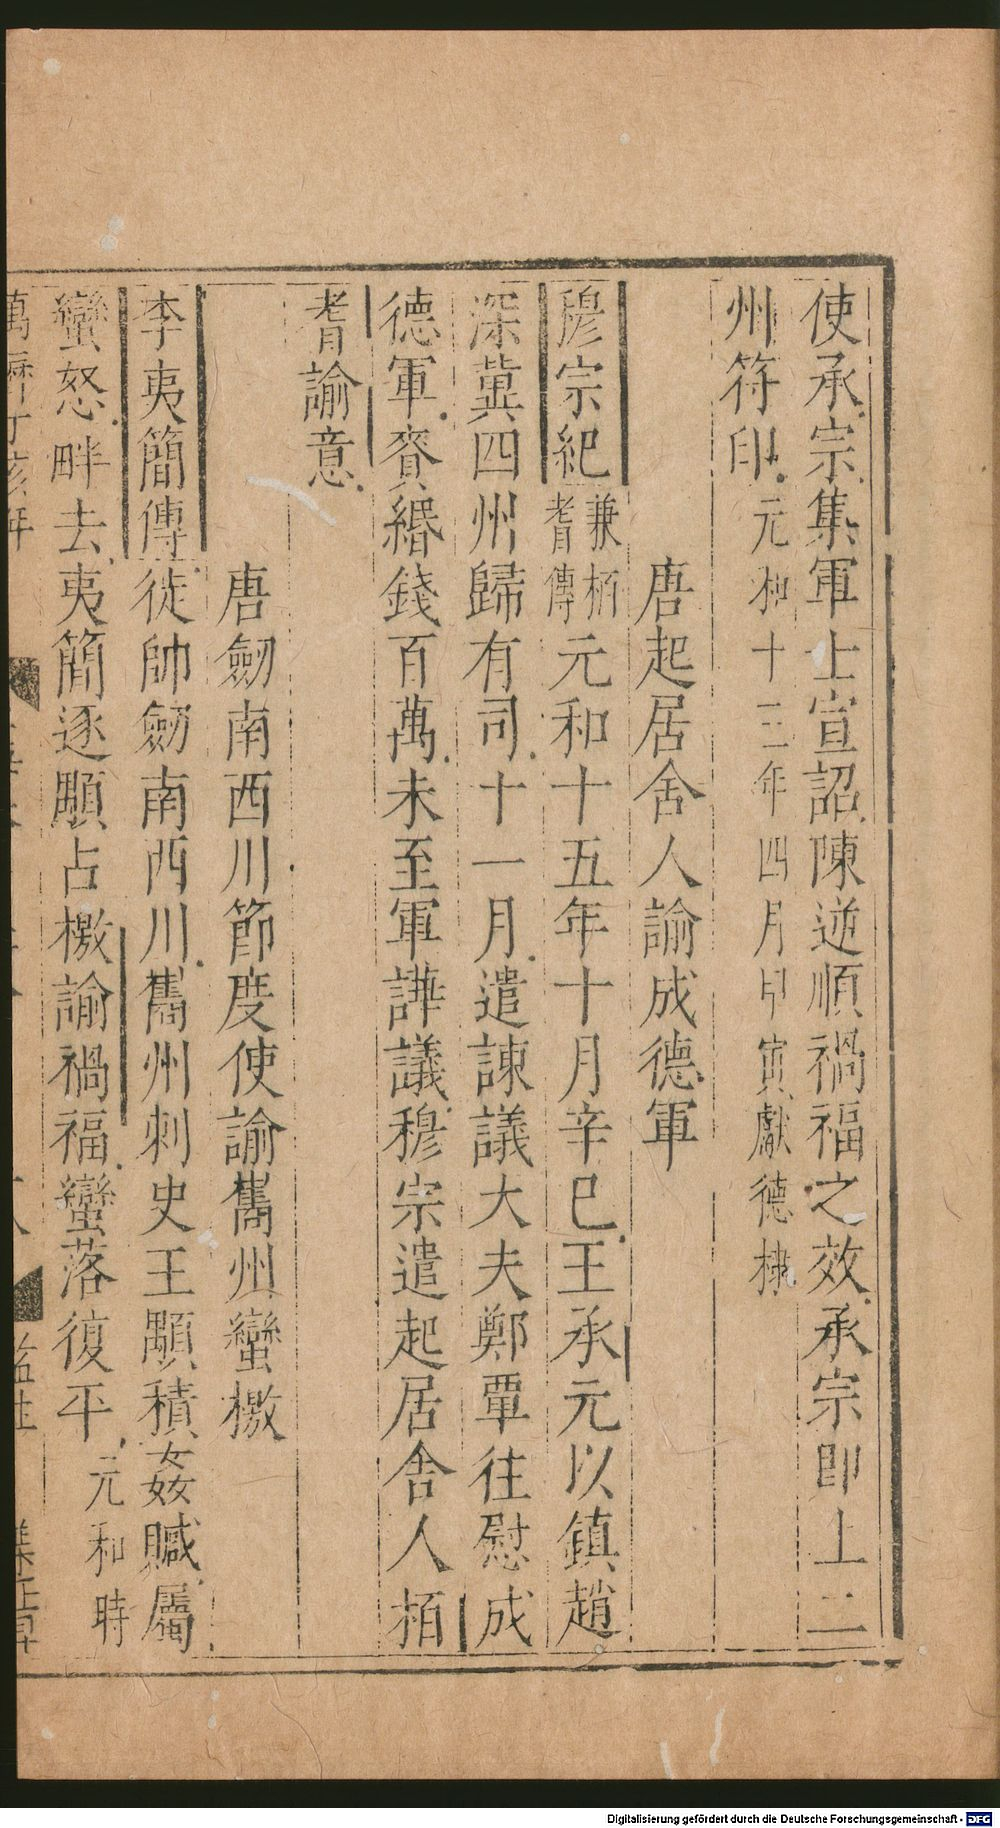 使承宗集軍士宣詔陳逆順禍福之效承宗即上二
州符印元和十三年四月甲寅獻德棣
唐起居舍人諭成德軍
穆宗紀兼栢耆傳元和十五年十月辛巳王承元以鎮趙
深冀四州歸有司十一月遣諫議大夫鄭覃往慰成
德軍賚緡錢百萬未至軍譁議穆宗遣起居舍人栢
耆諭意
唐劒南西川節度使諭巂州蠻檄
李夷簡傳徙帥劒南西川巂州刺史王顒積姦贓屬
蠻怒畔去夷簡逐顒占檄諭禍福蠻落復平元和時
萬曆丁亥年
Digitalisierung gefördert durch die Deutsche Forschungsgemeinschaft - DFG